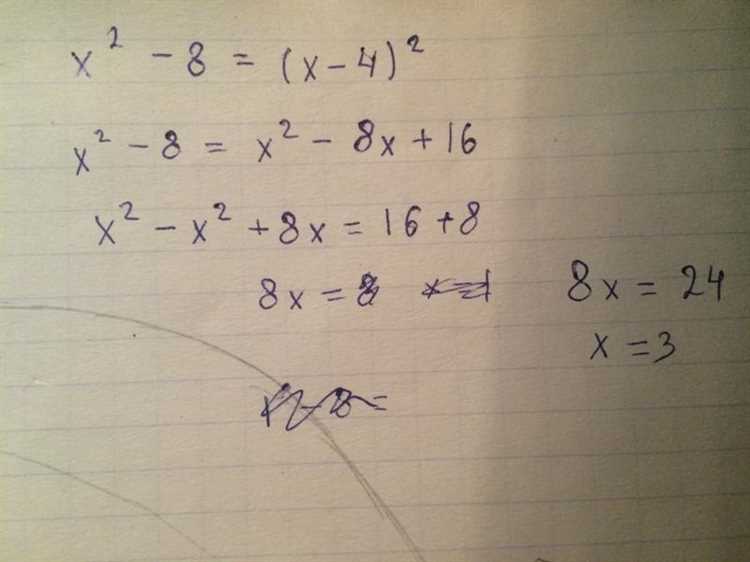 x² - 8 = (x - 4)²
x² - 8 = x² - 8x + 16
x² - x² + 8x = 16 + 8
8x = 8
8x = 24
x = 3